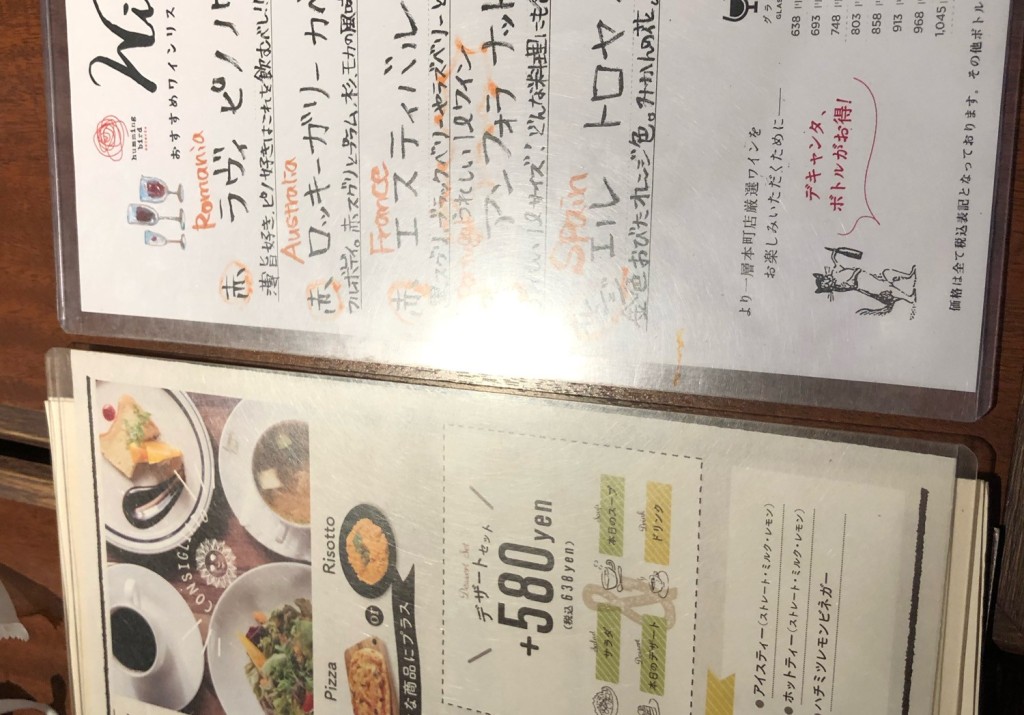 humming
bird
おすすめワインリス
Wi
Romania
赤 ラヴィ ピノノ
薄旨好き、ピノ好きはこれを飲むべし!!
Australia
赤 ロッキーガリー カベ
フルボディ。赤スグリとプラム、杉、モカの風
France
赤 エスティバル
うれしい1Lワイン
アンフォラ ナット
1Lサイズ、どんな料理にも
Spain
エル トロヤ
金色おびたオレンジ色。みかんの花。
グラ
GLAS
638
693
748
803
858
913
968
1,045
より一層本町店厳選ワインを
お楽しみいただくために
デキャンタ、
ボトルがお得!
価格は全て税込表記となっております。その他ボトル
CON'SIGL
Pizza or Risotto
な商品にプラス
Dessert Set
デザートセット
+580yen
(税込638yen)
サラダ
本日のスープ
Soup
本日のデザート
Dessert
ドリンク
Drink
●アイスティー(ストレート・ミルク・レモン)
●ホットティー(ストレート・ミルク・レモン)
ハチミツレモンビネガー